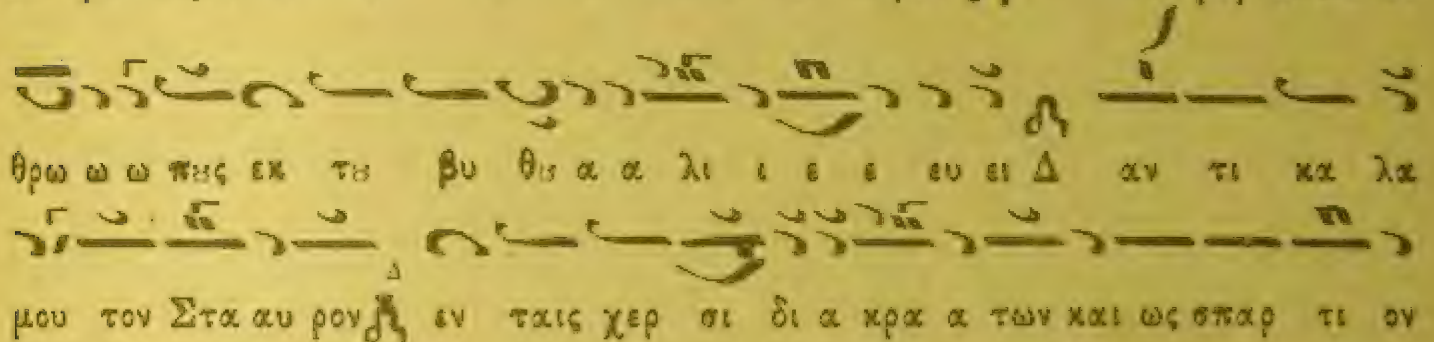 θρω ω ω πȣς εκ τȣ βυ θȣ α α λι ι ε ε ευ ει Δ αν τι κα λα
μου τον Στα αυ ρον Δ εν ταις χερ σι δι α κρα α των και ως σπαρ τι ον